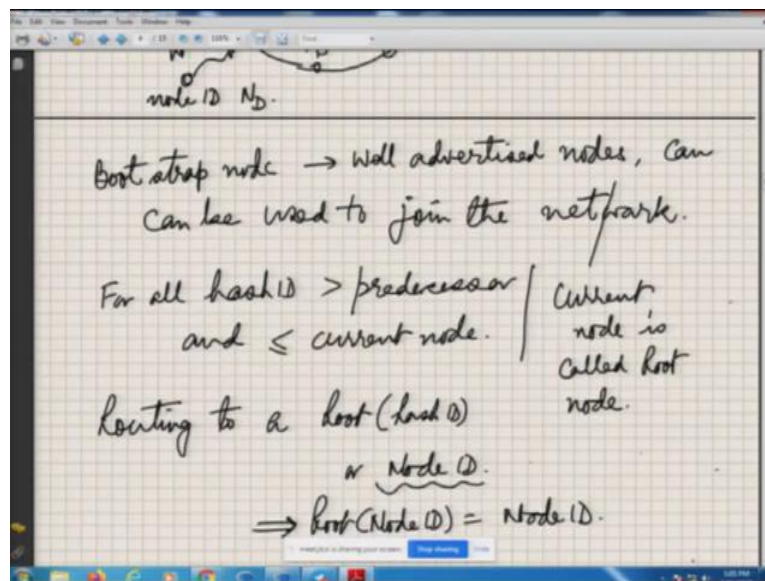 File Edit View Document Tools Window Help
node ID N_D.
Bootstrap node → Well advertised nodes, can
can be used to join the network.
For all hash ID > predecessor
and ≤ current node.
Current
node is
called Root
node.
Routing to a Root(hash ID)
or Node ID.
⇒ Root(Node ID) = Node ID.
is sharing your screen. Stop sharing Hide
5:05 PM